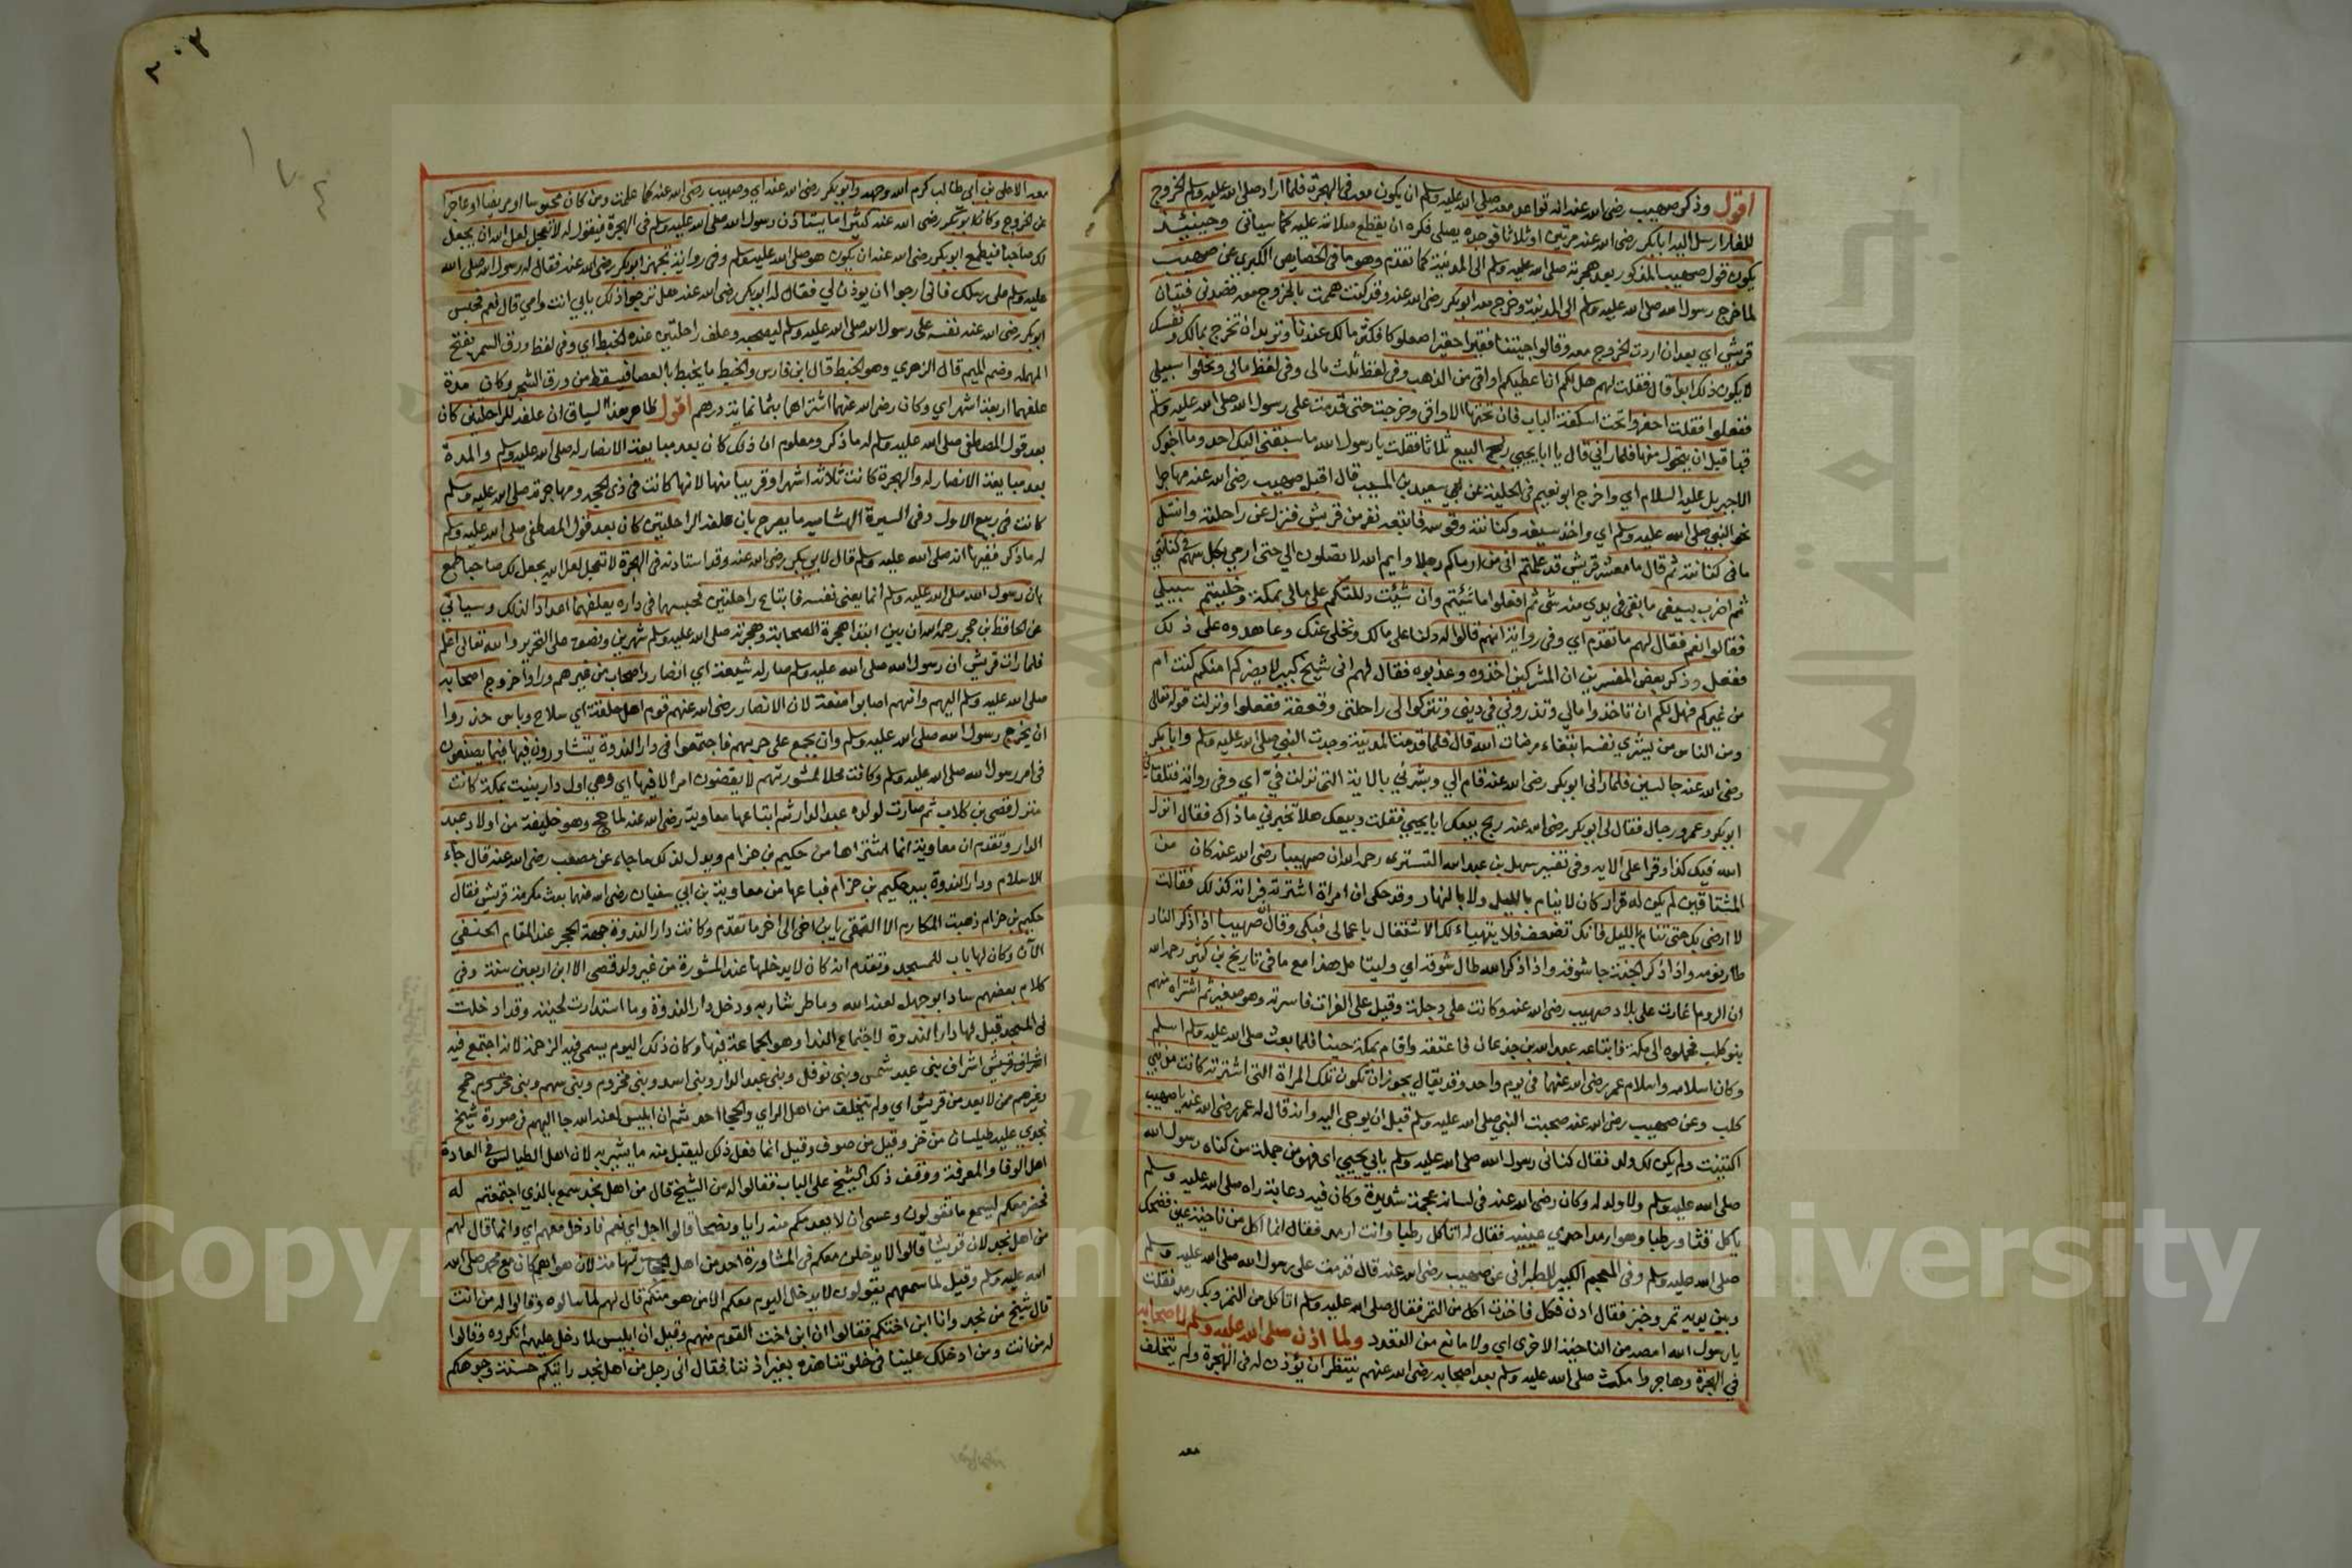 اقول وذكر صهيب رضي الله عنه انه تواعد معه صلى الله عليه وسلم ان يكون معه في الهجرة فلما اراد صلى الله عليه وسلم الخروج
للغار ارسل اليه ابا بكر رضي الله عنه مرتين او ثلاثا فوجده يصلي فكره ان يقطع صلاته عليه كما سياتي وحينئذ
يكون قول صهيب المذكور بعد هجرته صلى الله عليه وسلم الى المدينة كما تقدم وهو ما في الخصايص الكبرى عن صهيب
لما خرج رسول الله صلى الله عليه وسلم الى المدينة وخرج معه ابو بكر رضي الله عنه وقد كنت هممت بالخروج معه فصدني فتيان
قريش اي بعد ان اردت الخروج معه وقالوا جيتنا فقيرا حقيرا صعلوكا فكثر مالك عندنا وتريد ان تخرج بمالك ونفسك
لا يكون ذلك ابدا قال فقلت لهم هل لكم ان اعطيكم اواقي من الذهب وفي لفظ ثلث مالي وفي لفظ مالي وتخلوا سبيلي
ففعلوا فقلت احفروا تحت اسكفة الباب فان تحتها الاواقي وخرجت حتى قدمت على رسول الله صلى الله عليه وسلم
قبا قبل ان يتحول منها فلما راني قال يا ابا يحيى ربح البيع ثلاثا فقلت يا رسول الله ما سبقني اليك احد وما اخبرك
الا جبريل عليه السلام اي واخرج ابو نعيم في الحلية عن سعيد بن المسيب قال اقبل صهيب رضي الله عنه مهاجرا
نحو النبي صلى الله عليه وسلم اي واخذ سيفه وكنانته وقوسه فاتبعه نفر من قريش فنزل عن راحلته وانتثل
ما في كنانته ثم قال يا معشر قريش قد علمتم اني من ارماكم رجلا وايم الله لا تصلون الي حتى ارمي بكل سهم في كنانتي
ثم اضرب بسيفي ما بقي في يدي منه شي ثم افعلوا ما شيئتم وان شيئت دللتكم على مالي بمكة وخليتم سبيلي
فقالوا نعم فقال لهم ما تقدم اي وفي رواية انهم قالوا له دلنا على مالك ونخلي عنك وعاهدوه على ذلك
ففعل وذكر بعض المفسرين ان المشركين اخذوه وعذبوه فقال لهم اني شيخ كبير لا يضركم امنكم كنت ام
من غيركم فهل لكم ان تاخذوا مالي وتذروني في ديني وتتركوا لي راحلتي ونفقة ففعلوا ونزلت قوله تعالى
ومن الناس من يشري نفسه ابتغاء مرضات الله قال فلما قدمنا المدينة وجدت النبي صلى الله عليه وسلم وابا بكر
رضي الله عنه جالسين فلما راني ابو بكر رضي الله عنه قام الي وبشرني بالاية التي نزلت في اي وفي رواية فتلقاني
ابو بكر وعمر ورجال فقال لي ابو بكر رضي الله عنه ربح بيعك ابا يحيى فقلت وبيعك هلا تخبرني ما ذاك فقال انزل
الله فيك كذا وقرا على الاية وفي تفسير سهل بن عبد الله التستري رحمه الله ان صهيبا رضي الله عنه كان من
المشتاقين لم يكن له قرار كان لا ينام بالليل ولا بالنهار وقد حكى ان امراة اشترته فراته كذلك فقالت
لا ارضى بك حتى تنام بالليل فانك تضعف فلا يتهياء لك الاشتغال باعمالي فبكى وقال ان صهيبا اذا ذكر النار
طار نومه واذا ذكر الجنة جا شوقه واذا ذكر الله طال شوقه اي وليتامل هذا مع ما في تاريخ بن كثير رحمه الله
ان الروم اغارت على بلاد صهيب رضي الله عنه وكانت على دجلة وقيل على الفرات فاسرته وهو صغير ثم اشتراه منهم
بنو كلب فحملوه الى مكة فابتاعه عبد الله بن جذعان فاعتقه واقام بمكة حينا فلما بعث صلى الله عليه وسلم اسلم
وكان اسلامه واسلام عمر رضي الله عنهما في يوم واحد وقد يقال يجوز ان تكون تلك المراة التي اشترته كانت من بني
كلب وعن صهيب رضي الله عنه صحبت النبي صلى الله عليه وسلم قبل ان يوحى اليه وانه قال له عمر رضي الله عنه يا صهيب
اكتنيت ولم يكن لك ولد فقال كناني رسول الله صلى الله عليه وسلم بابي يحيى اي فهو من جملة من كناه رسول الله
صلى الله عليه وسلم ولا ولد له وكان رضي الله عنه في لسانه عجمة شديدة وكان فيه دعابة راه صلى الله عليه وسلم
ياكل قثا ورطبا وهو ارمد احدي عينيه فقال له اتاكل رطبا وانت ارمد فقال انما اكل من ناحية عيني فضحك
صلى الله عليه وسلم وفي المعجم الكبير للطبراني عن صهيب رضي الله عنه قال قدمت على رسول الله صلى الله عليه وسلم
وبين يديه تمر وخبز فقال ادن فكل فاخذت اكل من التمر فقال صلى الله عليه وسلم اتاكل من التمر وبك رمد فقلت
يا رسول الله امصه من الناحية الاخرى اي ولا مانع من التعدد ولما اذن صلى الله عليه وسلم لاصحابه
في الهجرة وهاجروا مكث صلى الله عليه وسلم بعد اصحابه رضي الله عنهم ينتظر ان يؤذن له في الهجرة ولم يتخلف
معه
٢٠٣
معه الا علي بن ابي طالب كرم الله وجهه وابو بكر رضي الله عنه اي وصهيب رضي الله عنه كما علمت ومن كان محبوسا او مريضا او عاجزا
عن الخروج وكان ابو بكر رضي الله عنه كثيرا ما يستاذن رسول الله صلى الله عليه وسلم في الهجرة فيقول له لا تعجل لعل الله ان يجعل
لك صاحبا فيطمع ابو بكر رضي الله عنه ان يكون هو صلى الله عليه وسلم وفي رواية تجهز ابو بكر رضي الله عنه فقال له رسول الله صلى الله
عليه وسلم على رسلك فاني ارجوا ان يوذن لي فقال له ابو بكر رضي الله عنه هل ترجوا ذلك بابي انت وامي قال نعم فحبس
ابو بكر رضي الله عنه نفسه على رسول الله صلى الله عليه وسلم ليصحبه وعلف راحلتين عنده الخبط اي وفي لفظ ورق السمر بفتح
المهمله وضم الميم قال الزهري وهو الخبط قال ابن فارس والخبط ما يخبط بالعصا فيسقط من ورق الشجر وكان مدة
علفهما اربعة اشهر اي وكان رضي الله عنهما اشتراها بثمانماية درهم اقول ظاهر هذا السياق ان علفه للراحلتين كان
بعد قول المصطفى صلى الله عليه وسلم له ما ذكر ومعلوم ان ذلك كان بعد مبايعة الانصار له صلى الله عليه وسلم والمدة
بعد مبايعة الانصار له والهجرة كانت ثلاثة اشهر او قريبا منها لانها كانت في ذي الحجه ومهاجرته صلى الله عليه وسلم
كانت في ربيع الاول وفي السيرة الهشاميه ما يصرح بان علفه الراحلتين كان بعد قول المصطفى صلى الله عليه وسلم
له ما ذكر ففيها انه صلى الله عليه وسلم قال لابي بكر رضي الله عنه وقد استاذنه في الهجرة لا تعجل لعل الله يجعل لك صاحبا طمع
بان رسول الله صلى الله عليه وسلم انما يعني نفسه فابتاع راحلتين فحبسهما في داره يعلفهما اعدادا لذلك وسياتي
عن الحافظ بن حجر رحمه الله ان بين ابتدا هجرة الصحابة وهجرته صلى الله عليه وسلم شهرين ونصف على التحرير والله تعالى اعلم
فلما رات قريش ان رسول الله صلى الله عليه وسلم صار له شيعة اي انصار واصحاب من غيرهم وراوا خروج اصحابه
صلى الله عليه وسلم اليهم وانهم اصابوا منعة لان الانصار رضي الله عنهم قوم اهل حلقة اي سلاح وباس حذروا
ان يخرج رسول الله صلى الله عليه وسلم وان يجمع على حربهم فاجتمعوا في دار الندوة يتشاورون فيها فيما يصنعون
في امر رسول الله صلى الله عليه وسلم وكانت محلا لمشورتهم لا يقضون امرا الا فيها اي وهي اول دار بنيت بمكة كانت
منزل قصي بن كلاب ثم صارت لولده عبد الدار ثم ابتاعها معاوية رضي الله عنه لما حج وهو خليفة من اولاد عبد
الدار وتقدم ان معاوية انما اشتراها من حكيم بن حزام ويدل لذلك ما جاء عن مصعب رضي الله عنه قال جاء
الاسلام ودار الندوة بيد حكيم بن حزام فباعها من معاوية بن ابي سفيان رضي الله عنهما بعث مكرمة قريش فقال
حكيم بن حزام ذهبت المكارم الا التقى يا بن اخي الى اخر ما تقدم وكانت دار الندوة جهة الحجر عند المقام الحنفي
الآن وكان لها باب للمسجد وتقدم انه كان لا يدخلها عند المشورة من غير ولد قصي الا ابن اربعين سنة وفي
كلام بعضهم ساد ابو جهل لعنه الله وما طر شاربه ودخل دار الندوة وما استدارت لحيته وقد ادخلت
في المسجد قيل لها دار الندوة لاجتماع الندا وهو الجماعة فيها وكان ذلك اليوم يسمى فيه الزحمة لانه اجتمع فيه
اشراف قريش اشراف بني عبد شمس وبني نوفل وبني عبد الدار وبني اسد وبني مخزوم وبني سهم وبني جمح
وغيرهم ممن لا يعد من قريش اي ولم يتخلف من اهل الراي والحجا احد ثم ان ابليس لعنه الله جا اليهم في صورة شيخ
نجدي عليه طيلسان من خز وقيل من صوف وقيل انما فعل ذلك ليقبل منه ما يشير به لان اهل الطيالس في العادة
اهل الوقا والمعرفة ووقف ذلك الشيخ على الباب فقالوا له من الشيخ قال من اهل نجد سمع بالذي اجتمعتم له
فحضر معكم ليسمع ما تقولون وعسى ان لا يعدمكم منه رايا ونصحا قالوا اجل اي نعم فادخل معهم اي وانما قال لهم
من اهل نجد لان قريشا قالوا لا يدخلن معكم في المشاورة احد من اهل تهامة لان هواهم كان مع محمد صلى الله
الله عليه وسلم وقيل لما سمعهم يقولون لا يدخل اليوم معكم الا من هو منكم قال لهم لما سالوه وقالوا له من انت
قال شيخ من نجد وانا ابن اختكم فقالوا ابن اخت القوم منهم وقيل ان ابليس لما دخل عليهم انكروه وقالوا
له من انت ومن ادخلك علينا في خلوتنا هذه بغير اذننا فقال اني رجل من اهل نجد رايتكم حسنة وجوهكم
Copyright © King Saud University
جامعة الملك سعود